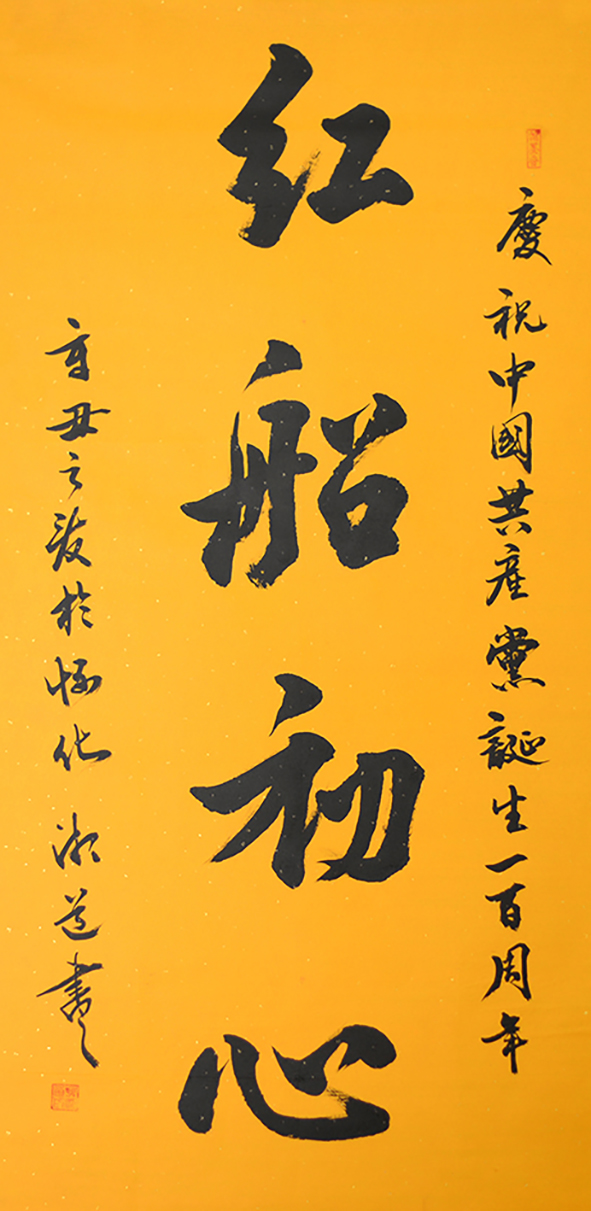 慶祝中國共產黨誕生一百周年
红船初心
辛丑之于懷化
書